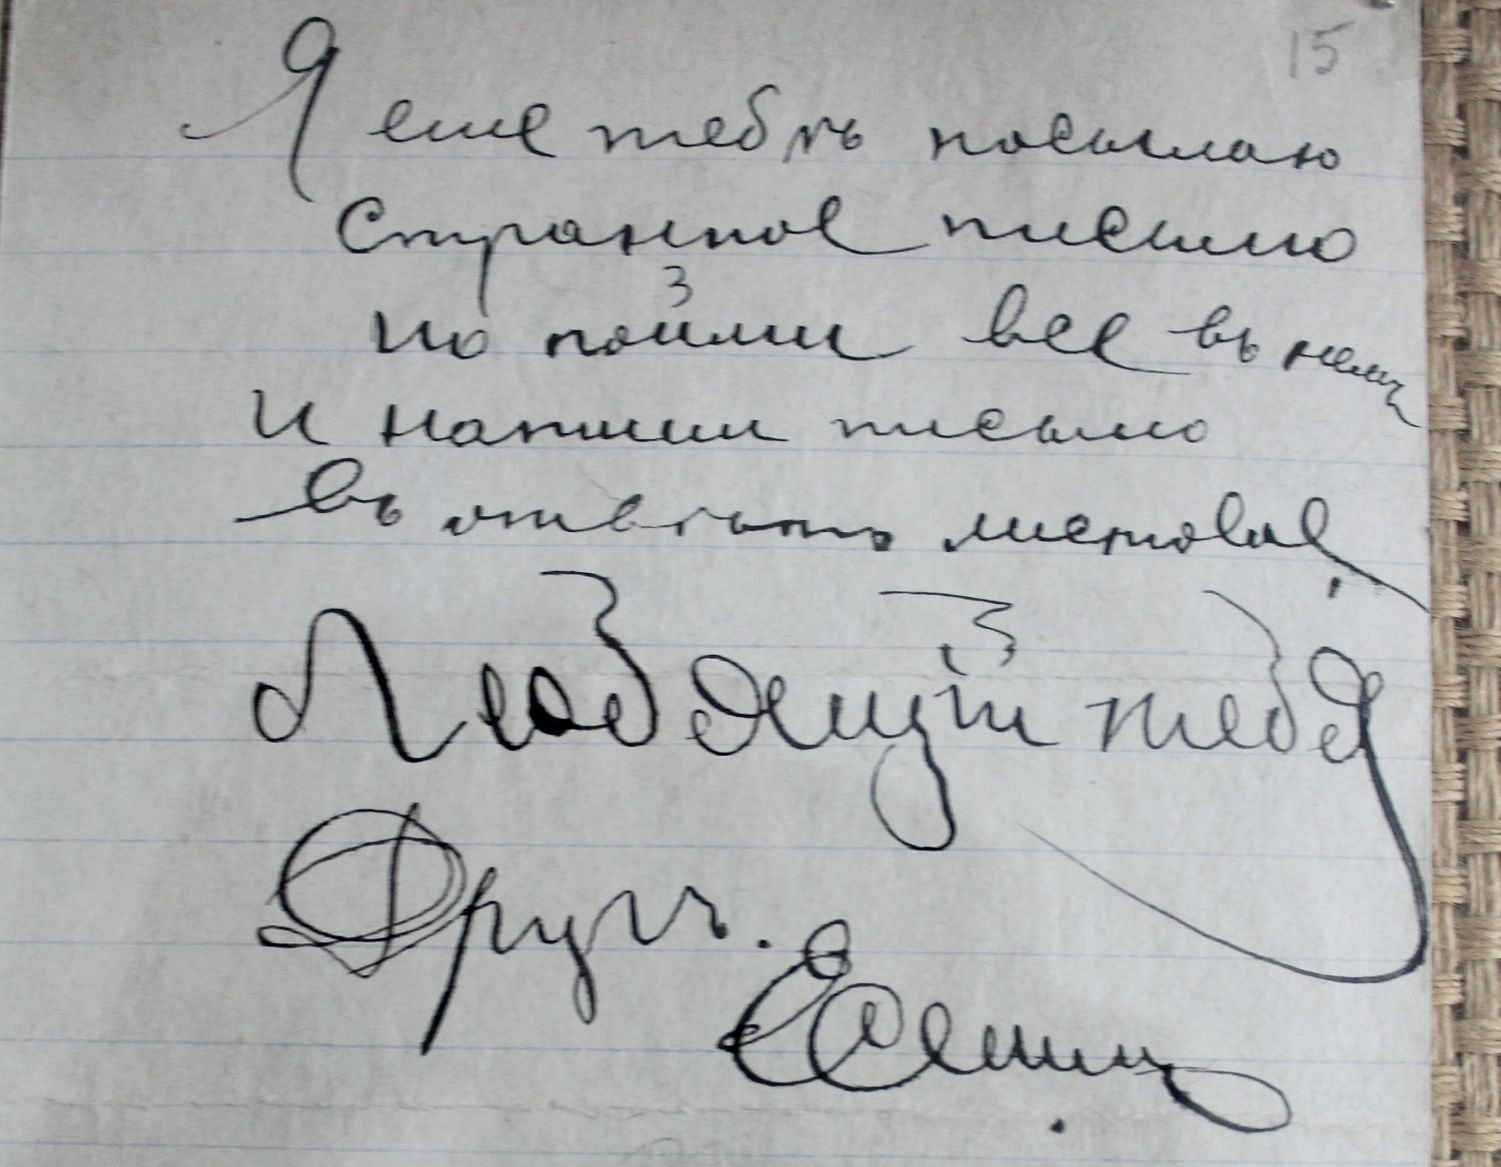 15
Я еще тебѣ посылаю
странное письмо
но пойми все въ немъ
и напиши письмо
въ отвѣтъ листовое,
Любящій тебя
Другъ.
Есенинъ.